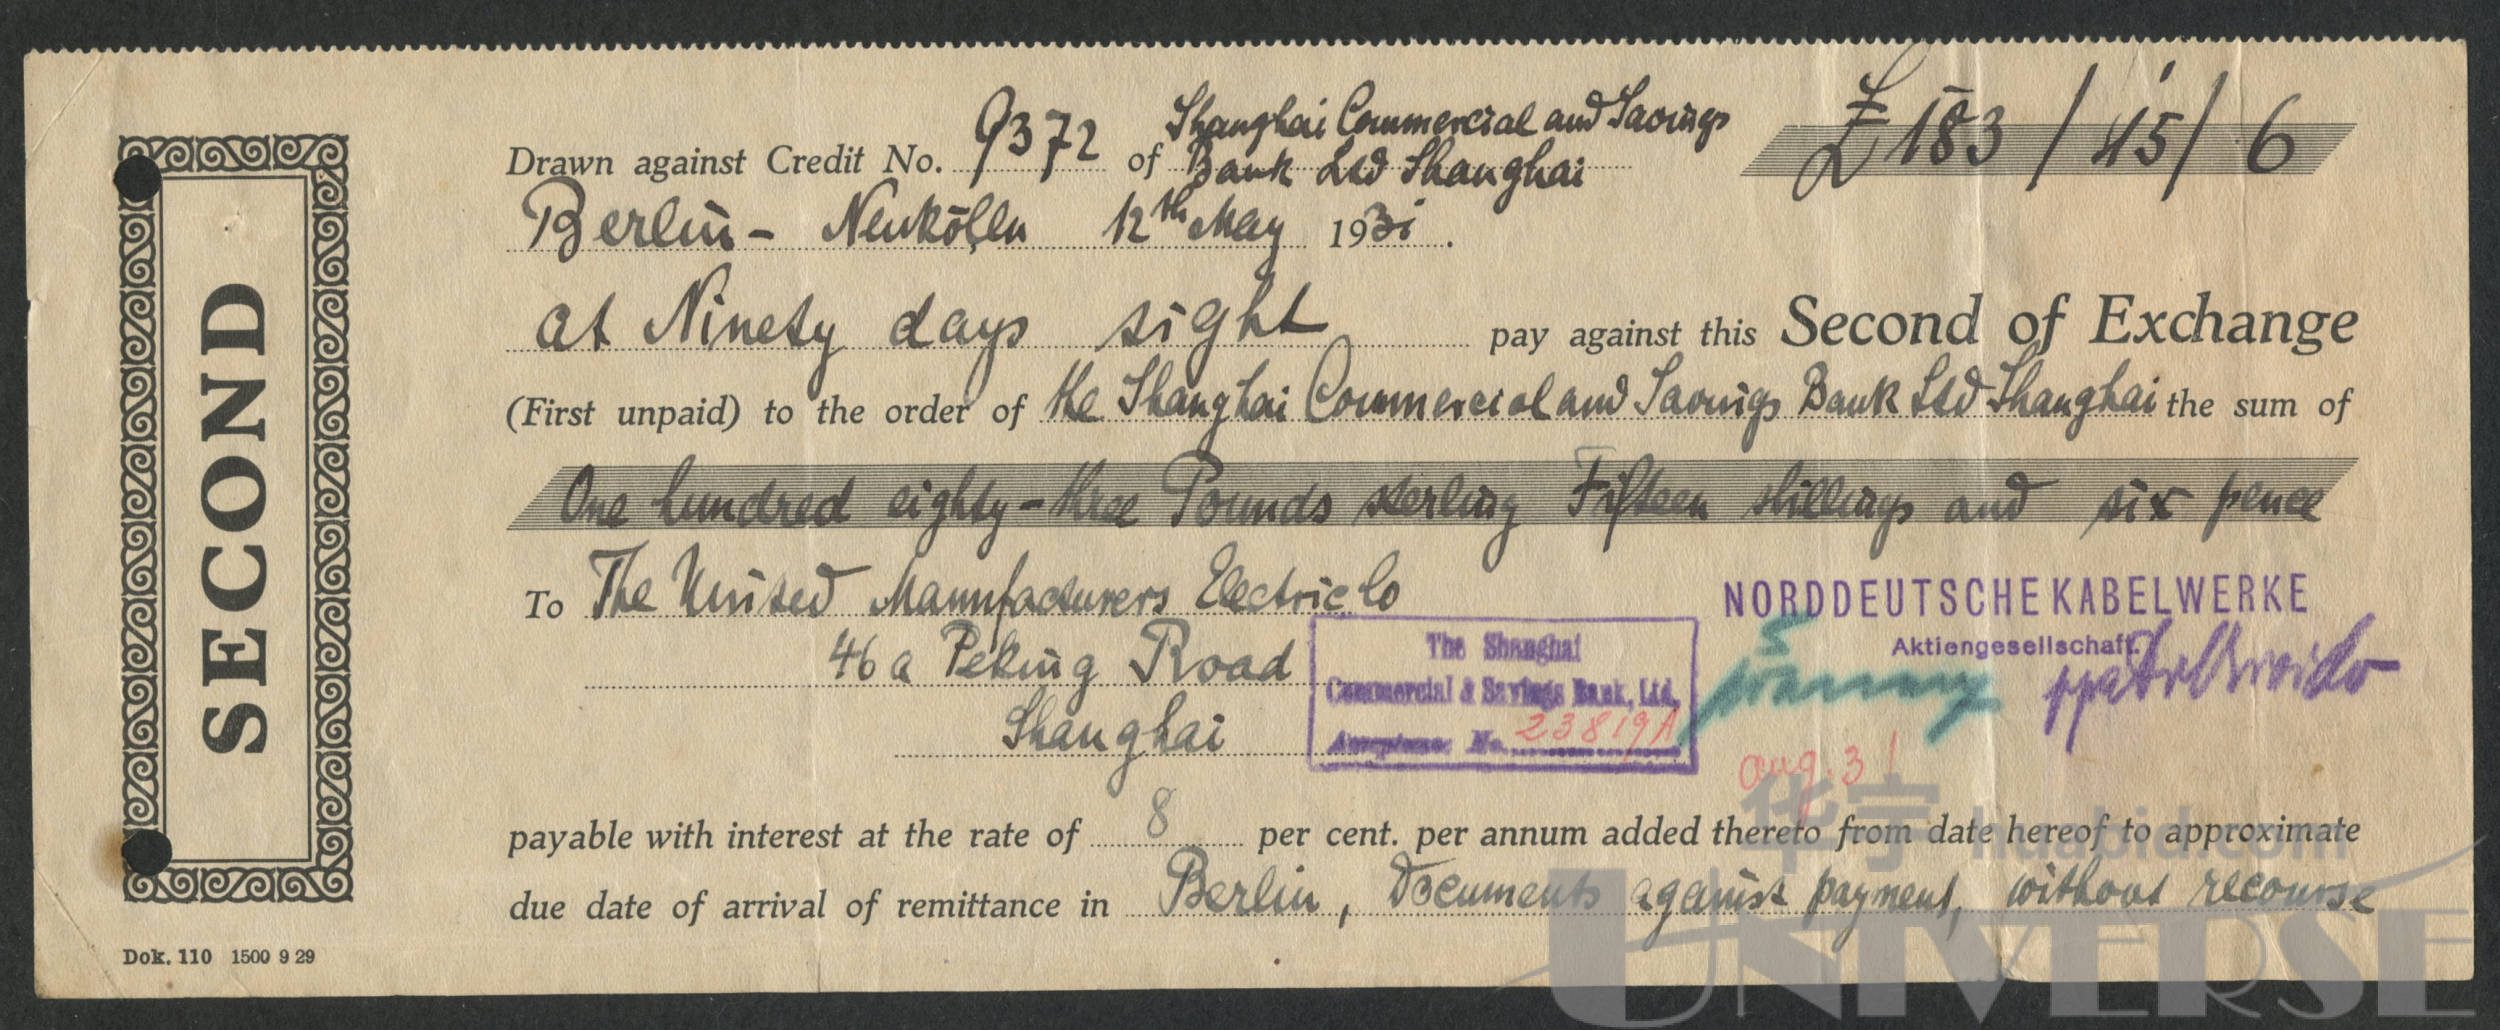 SECOND
Drawn against Credit No. 9372 of Shanghai Commercial and Savings
Bank Ltd Shanghai
£ 183/15/6
Berlin - Neukölln 12th May 1931.
at Ninety days sight pay against this Second of Exchange
(First unpaid) to the order of the Shanghai Commercial and Savings Bank Ltd Shanghai the sum of
One hundred eighty-three Pounds sterling Fifteen shillings and six pence
To The United Manufacturers Electric Co
46a Peking Road
Shanghai
NORDDEUTSCHE KABELWERKE
Aktiengesellschaft.
The Shanghai
Commercial & Savings Bank, Ltd.
Acceptance No. 23819A
aug. 31
payable with interest at the rate of 8 per cent. per annum added thereto from date hereof to approximate
due date of arrival of remittance in Berlin, Documents against payment, without recourse
Dok. 110 1500 9 29
华宇 huabid.com
UNIVERSE